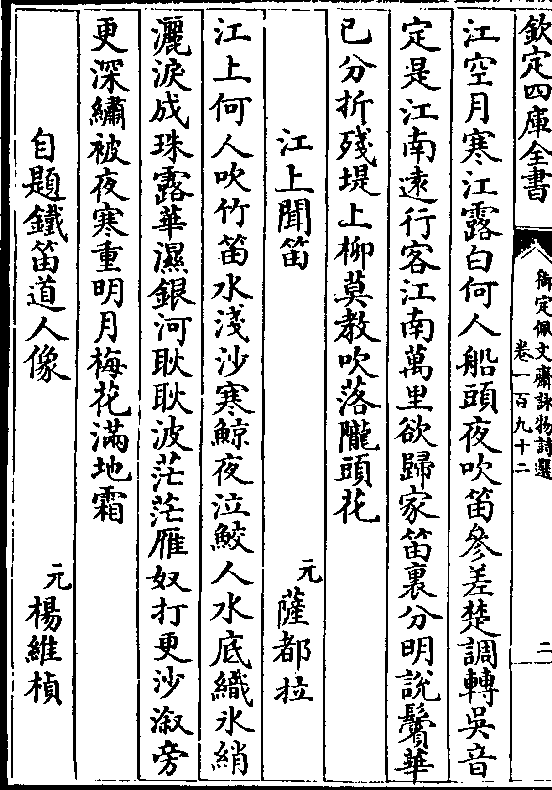 欽定四庫全書
御定佩文齋詠物詩選
卷一百九十二
二
江空月寒江露白何人船頭夜吹笛參差楚調轉吳音
定是江南遠行客江南萬里欲歸家笛裏分明說鬢華
已分折殘堤上柳莫教吹落隴頭花
江上聞笛
元薩都拉
江上何人吹竹笛水淺沙寒鯨夜泣鮫人水底織氷綃
灑淚成珠露華濕銀河耿耿波茫茫雁奴打更沙漵旁
更深繡被夜寒重明月梅花滿地霜
自題鐵笛道人像
元楊維楨